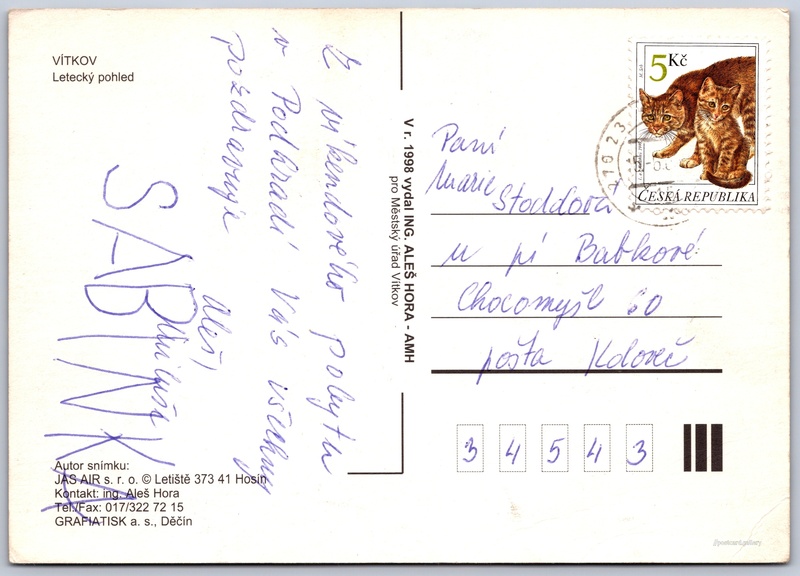 VÍTKOV
Letecký pohled
Z víkendového pobytu
v Podhradí Vás všechny
pozdravuje
Aleš,
Miluše
SABINKA
Autor snímku:
JAS AIR s. r. o. © Letiště 373 41 Hosín
Kontakt: ing. Aleš Hora
Tel./Fax: 017/322 72 15
GRAFIATISK a. s., Děčín
V r. 1998 vydal ING. ALEŠ HORA - AMH
pro Městský úřad Vítkov
5 Kč
ČESKÁ REPUBLIKA
Paní
Marie Stoddová
u pí Babkové
Chocomyšl 60
pošta Kdoveč
3 4 5 4 3